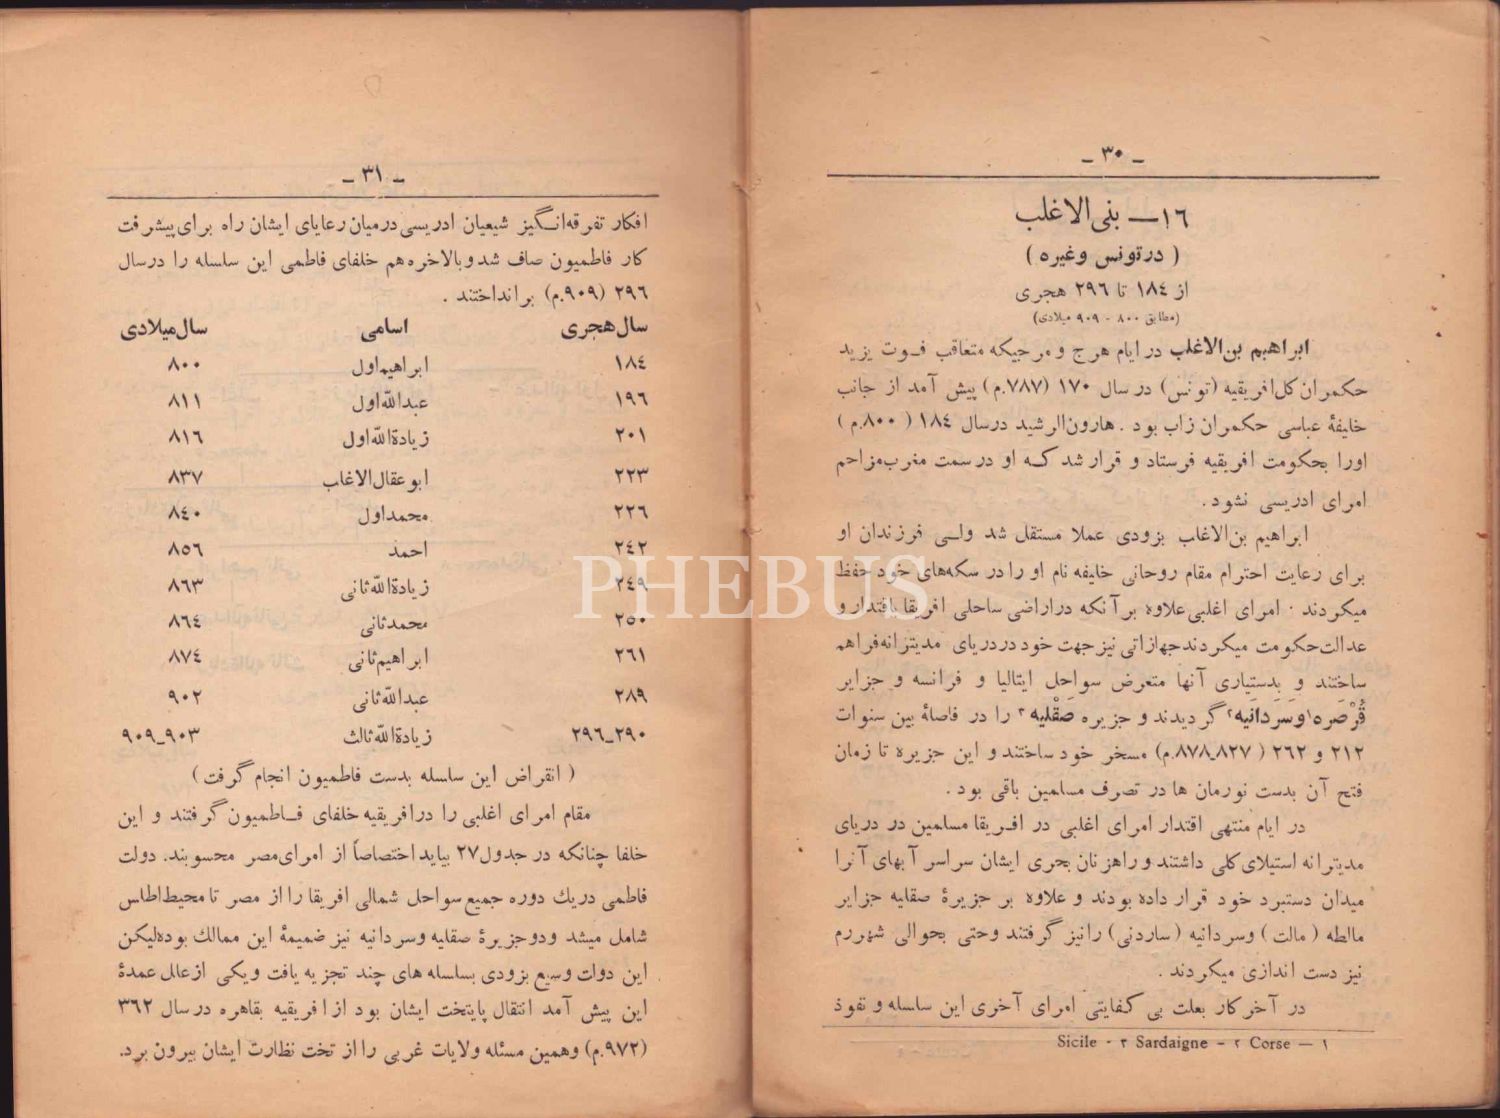 ـ ٣٠ ـ
١٦ — بنی الاغلب
( در تونس و غیره )
از ١٨٤ تا ٢٩٦ هجری
(مطابق ٨٠٠ - ٩٠٩ میلادی)
ابراهیم بن الاغلب در ایام هرج و مرجیکه متعاقب فوت یزید
حکمران کل افریقیه (تونس) در سال ١٧٠ (٧٨٧.م) پیش آمد از جانب
خلیفۀ عباسی حکمران زاب بود . هارون الرشید در سال ١٨٤ ( ٨٠٠.م )
اورا بحکومت افریقیه فرستاد و قرار شد که او در سمت مغرب مزاحم
امرای ادریسی نشود .
ابراهیم بن الاغلب بزودی عملا مستقل شد ولی فرزندان او
برای رعایت احترام مقام روحانی خلیفه نام او را در سکه‌های خود حفظ
میکردند . امرای اغلبی علاوه بر آنکه در اراضی ساحلی افریقا باقتدار و
عدالت حکومت میکردند جهازاتی نیز جهت خود در دریای مدیترانه فراهم
ساختند و بدستیاری آنها متعرض سواحل ایتالیا و فرانسه و جزایر
قُرْصَره ١ و سَردَانیه ٢ گردیدند و جزیره صَقْلیه ٣ را در فاصلۀ بین سنوات
٢١٢ و ٢٦٢ ( ٨٢٧ـ٨٧٨.م) مسخر خود ساختند و این جزیره تا زمان
فتح آن بدست نورمان ها در تصرف مسلمین باقی بود .
در ایام منتهی اقتدار امرای اغلبی در افریقا مسلمین در دریای
مدیترانه استیلای کلی داشتند و راهزنان بحری ایشان سراسر آبهای آنرا
میدان دستبرد خود قرار داده بودند و علاوه بر جزیرۀ صقلیه جزایر
مالطه ( مالت ) وسردانیه (ساردنی) رانیز گرفتند وحتی بحوالی شهر رم
نیز دست اندازی میکردند .
در آخر کار بعلت بی کفایتی امرای آخری این سلسله و نفوذ
١ — Corse ٢ – Sardaigne ٣ - Sicile
ـ ٣١ ـ
افکار تفرقه‌انگیز شیعیان ادریسی درمیان رعایای ایشان راه برای پیشرفت
کار فاطمیون صاف شد و بالاخره هم خلفای فاطمی این سلسله را در سال
٢٩٦ (٩٠٩.م) بر انداختند .
سال هجری اسامی سال میلادی
١٨٤ ابراهیم اول ٨٠٠
١٩٦ عبدالله اول ٨١١
٢٠١ زیادةالله اول ٨١٦
٢٢٣ ابوعقال الاغلب ٨٣٧
٢٢٦ محمد اول ٨٤٠
٢٤٢ احمد ٨٥٦
٢٤٩ زیادةالله ثانی ٨٦٣
٢٥٠ محمد ثانی ٨٦٤
٢٦١ ابراهیم ثانی ٨٧٤
٢٨٩ عبدالله ثانی ٩٠٢
٢٩٠ـ٢٩٦ زیادةالله ثالث ٩٠٣ـ٩٠٩
( انقراض این سلسله بدست فاطمیون انجام گرفت )
مقام امرای اغلبی را در افریقیه خلفای فاطمیون گرفتند و این
خلفا چنانکه در جدول ٢٧ بیاید اختصاصاً از امرای مصر محسوبند. دولت
فاطمی در یك دوره جمیع سواحل شمالی افریقا را از مصر تا محیط اطلس
شامل میشد ودو جزیرۀ صقلیه وسردانیه نیز ضمیمۀ این ممالك بوده لیکن
این دولت وسیع بزودی بسلسله های چند تجزیه یافت و یکی از علل عمدۀ
این پیش آمد انتقال پایتخت ایشان بود از افریقیه بقاهره در سال ٣٦٢
(٩٧٢.م) وهمین مسئله ولایات غربی را از تحت نظارت ایشان بیرون برد.
PHEBUS